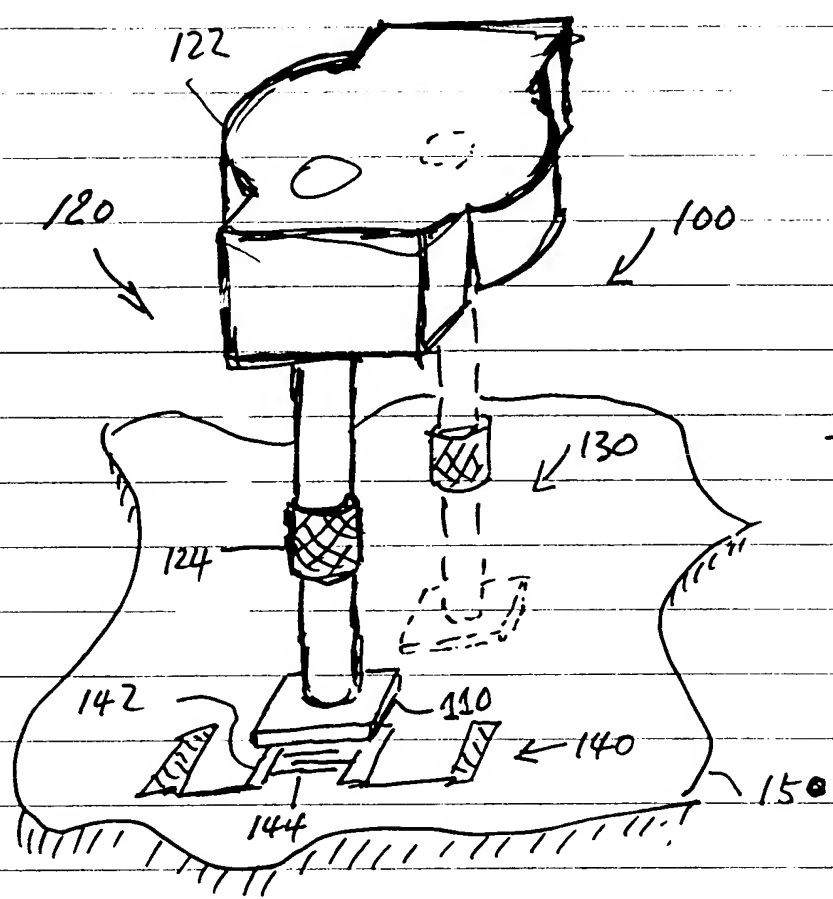 122
120
100
130
124
142
110
140
150
144